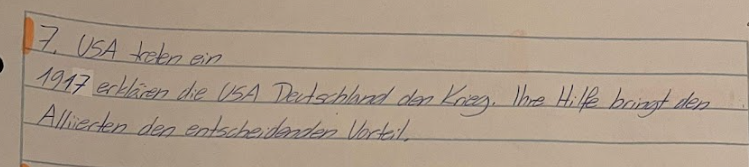 7. USA treten ein
1917 erklären die USA Deutschland den Krieg. Ihre Hilfe bringt den
Alliierten den entscheidenden Vorteil.